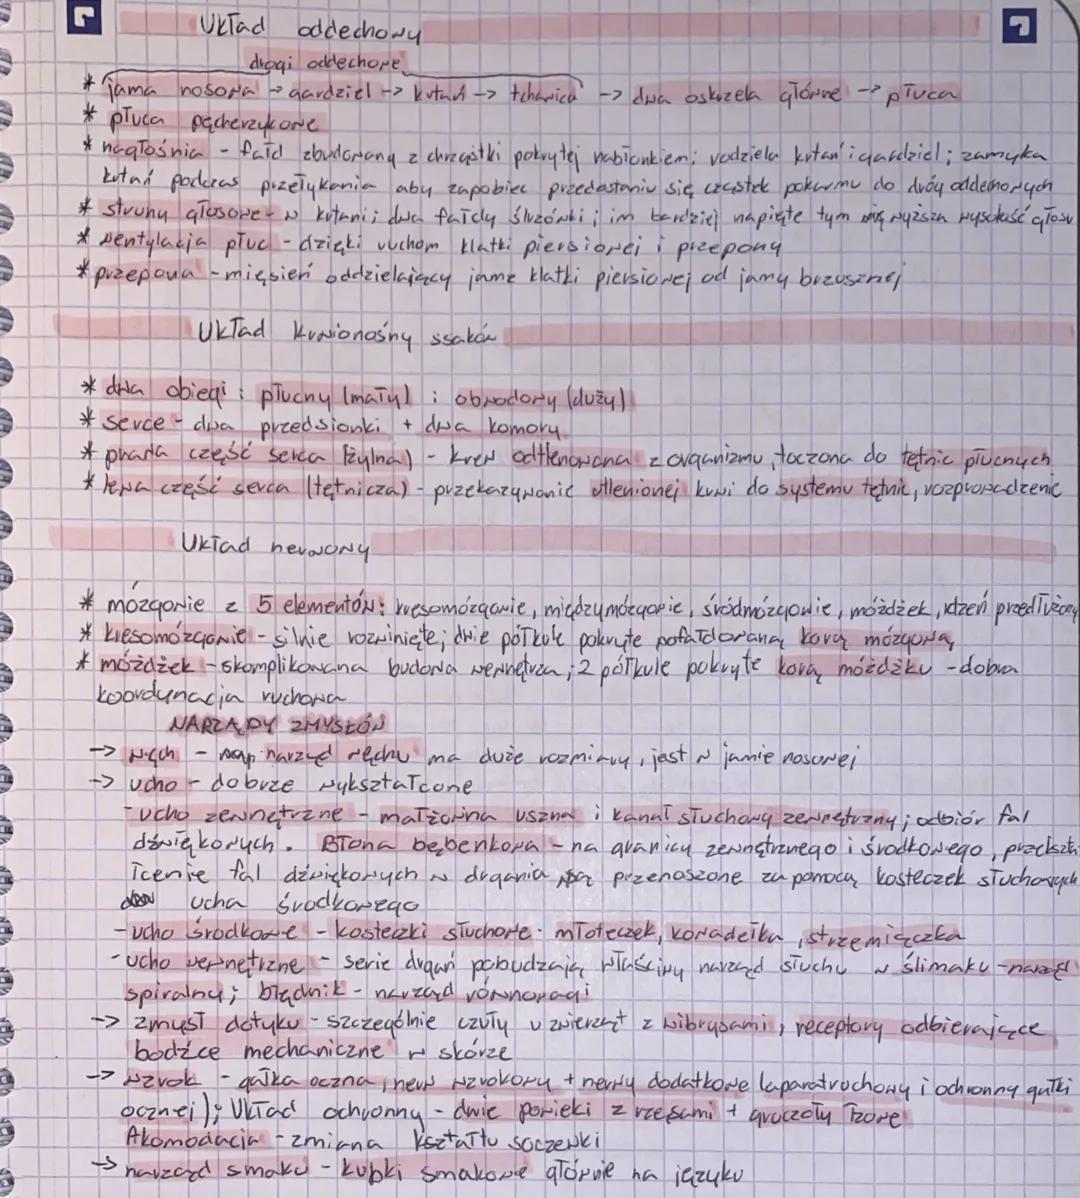 Układ oddechowy
drogi oddechowe
* jama nosowa → gardziel → krtań → tchawica → dwa oskrzela główne → płuca
* płuca pęcherzykowe
* nagłośnia - fałd zbudowany z chrząstki pokrytej nabłonkiem; rodziela krtań i gardziel; zamyka
krtań podczas przełykania aby zapobiec przedostaniu się cząstek pokarmu do dróg oddechowych
* struny głosowe - w krtani; dwa fałdy śluzówki; im bardziej napięte tym wyższa wysokość głosu
* wentylacja płuc - dzięki ruchom klatki piersiowej i przepony
* przepona - mięsień oddzielający jamę klatki piersiowej od jamy brzusznej
Układ krwionośny ssaków
* dwa obiegi: płucny (mały) i obwodowy (duży)
* serce - dwa przedsionki + dwa komory
* prawa część serca (żylna) - krew odtlenowana z organizmu, toczona do tętnic płucnych
* lewa część serca (tętnicza) - przekazywanie utlenionej krwi do systemu tętnic, rozprowadzenie
Układ nerwowy
* mózgowie z 5 elementów: kresomózgowie, międzymózgowie, śródmózgowie, móżdżek, rdzeń przedłużony
* kresomózgowie - silnie rozwinięte; dwie półkule pokryte pofałdowaną korą mózgową
* móżdżek - skomplikowana budowa wewnętrza; 2 półkule pokryte korą móżdżku - dobra
koordynacja ruchowa
NARZĄDY ZMYSŁÓW
→ węch - narząd węchu ma duże rozmiary, jest w jamie nosowej
→ ucho - dobrze wykształcone
- ucho zewnętrzne - małżowina uszna i kanał słuchowy zewnętrzny; odbiór fal
dźwiękowych. Błona bębenkowa - na granicy zewnętrznego i środkowego, przekszta-
łcenie fal dźwiękowych w drgania przenoszone za pomocą kosteczek słuchowych
ucha środkowego
- ucho środkowe - kosteczki słuchowe - młoteczek, kowadełko, strzemiączko
- ucho wewnętrzne - serie drgań pobudzają właściwy narząd słuchu w ślimaku - narząd
spiralny; błędnik - narząd równowagi
→ zmysł dotyku - szczególnie czuły u zwierząt z wibrysami, receptory odbierające
bodźce mechaniczne w skórze
→ wzrok - gałka oczna, nerw wzrokowy + nerwy dodatkowe (aparat ruchowy i ochronny gałki
ocznej); Układ ochronny - dwie powieki z rzęsami + gruczoły łzowe
Akomodacja - zmiana kształtu soczewki
→ narząd smaku - kubki smakowe głównie na języku